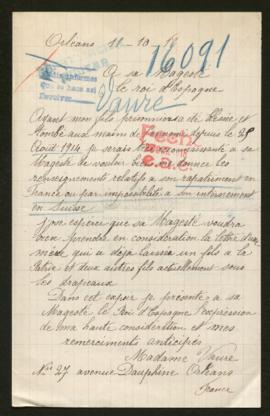 Orléans 11-10-17
16091
A sa Majesté
le roi d'Espagne
informes
que se hace así
Vavre
Ayant mon fils prisonnier de guerre et
tombé aux mains de depuis le 28
Août 1914, je serais très reconnaissante à sa
Majesté de vouloir bien me donner les
renseignements relatifs à son rapatriement en
France ou par impossibilité à son internement
en Suisse
j'ose espérer que sa Majesté voudra
bien prendre en considération la lettre d'une
mère qui a déjà laissé un fils à la
Patrie et deux autres fils actuellement sous
les drapeaux
Dans cet espoir je présente à sa
Majesté le Roi d'Espagne l'expression
de ma haute considération et mes
remerciments anticipés
Madame Vavre
No 27 avenue Dauphine Orléans
France